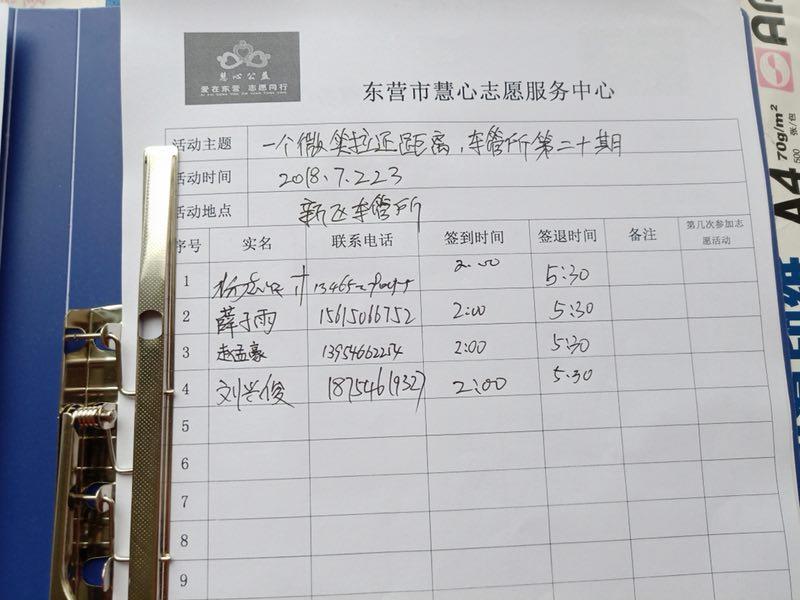 慧心公益
爱在东营 志愿同行
东营市慧心志愿服务中心
活动主题 一个微笑拉近距离,车管所第二十期
活动时间 2018.7.223
活动地点 新区车管所
序号 实名 联系电话 签到时间 签退时间 备注 第几次参加志愿活动
1 2:00 5:30
2 薛子雨 15615066752 2:00 5:30
3 赵孟豪 13954662254 2:00 5:30
4 刘兴俊 18754619327 2:00 5:30
5
6
7
8
9
A4
70g/m²
500 张/包